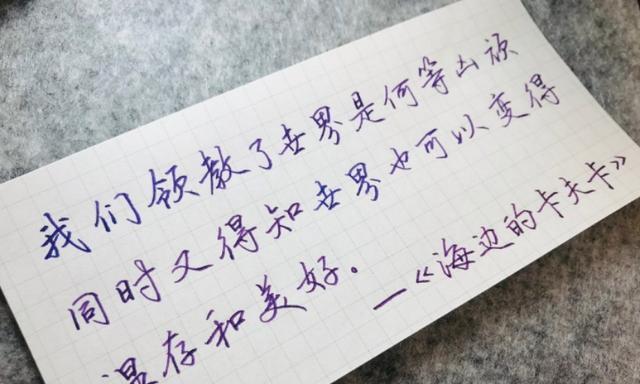 我们领教了世界是何等凶顽
同时又得知世界也可以变得
温存和美好。
—《海边的卡夫卡》